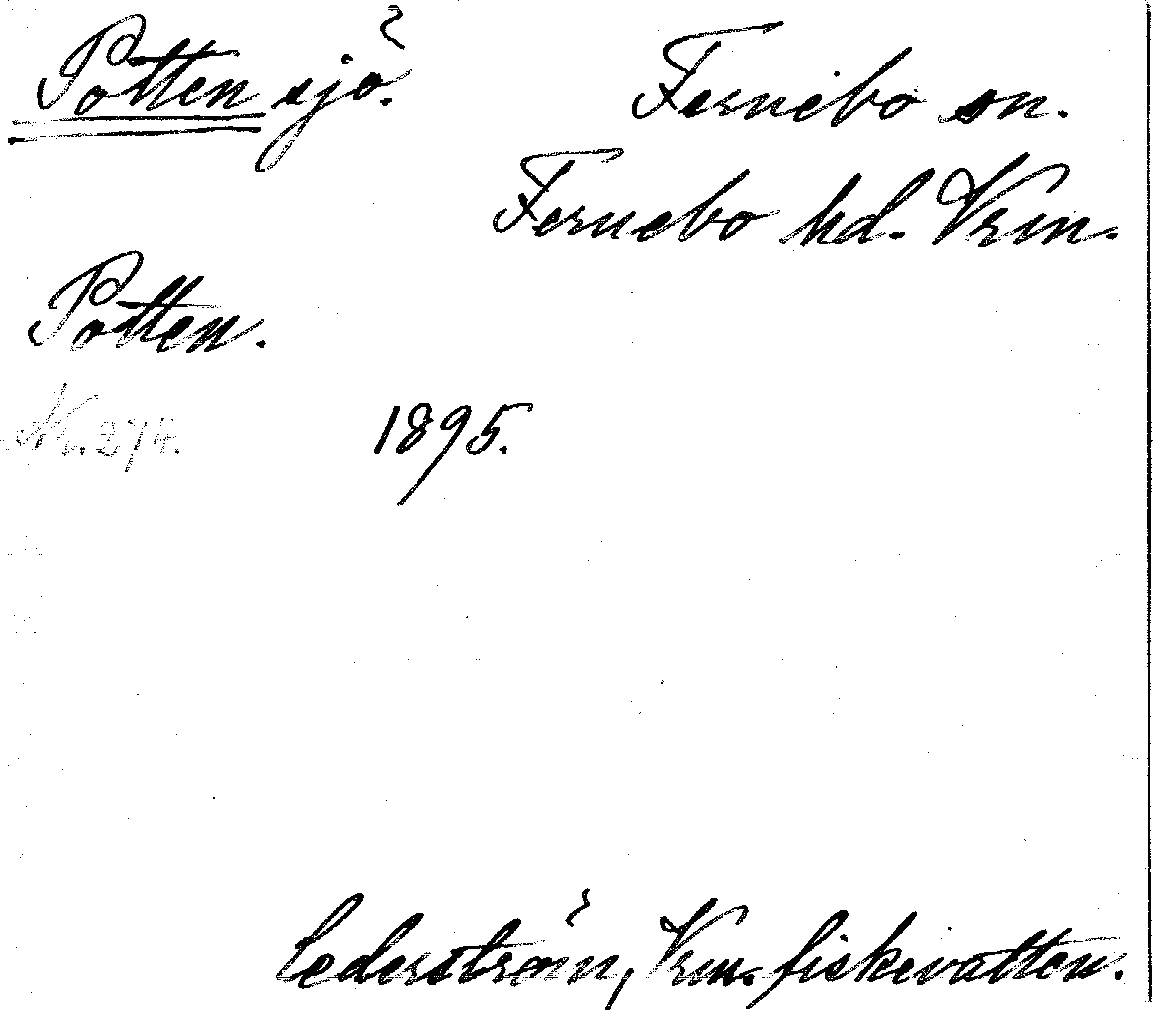 Potten sjö. Fernebo sn.
Fernebo hd. Vrm.
Potten.
Nr. 274. 1895.
Cederström, Vrm. fiskevatten.